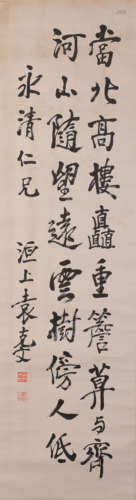 當北高樓矗重簷莫与齊
河山隨望遠雲樹傍人低
永清仁兄
洹上袁克文